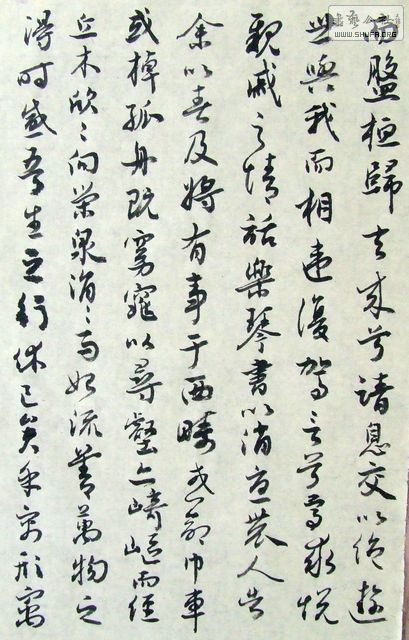 而盤桓歸去來兮請息交以絕遊
世與我而相違復駕言兮焉求悅
親戚之情話樂琴書以消憂農人告
余以春及將有事于西疇或命巾車
或棹孤舟既窈窕以尋壑亦崎嶇而經
丘木欣〻向榮泉涓〻而始流善萬物之
得時感吾生之行休已矣乎寓形寓
WWW.SHUFA.ORG